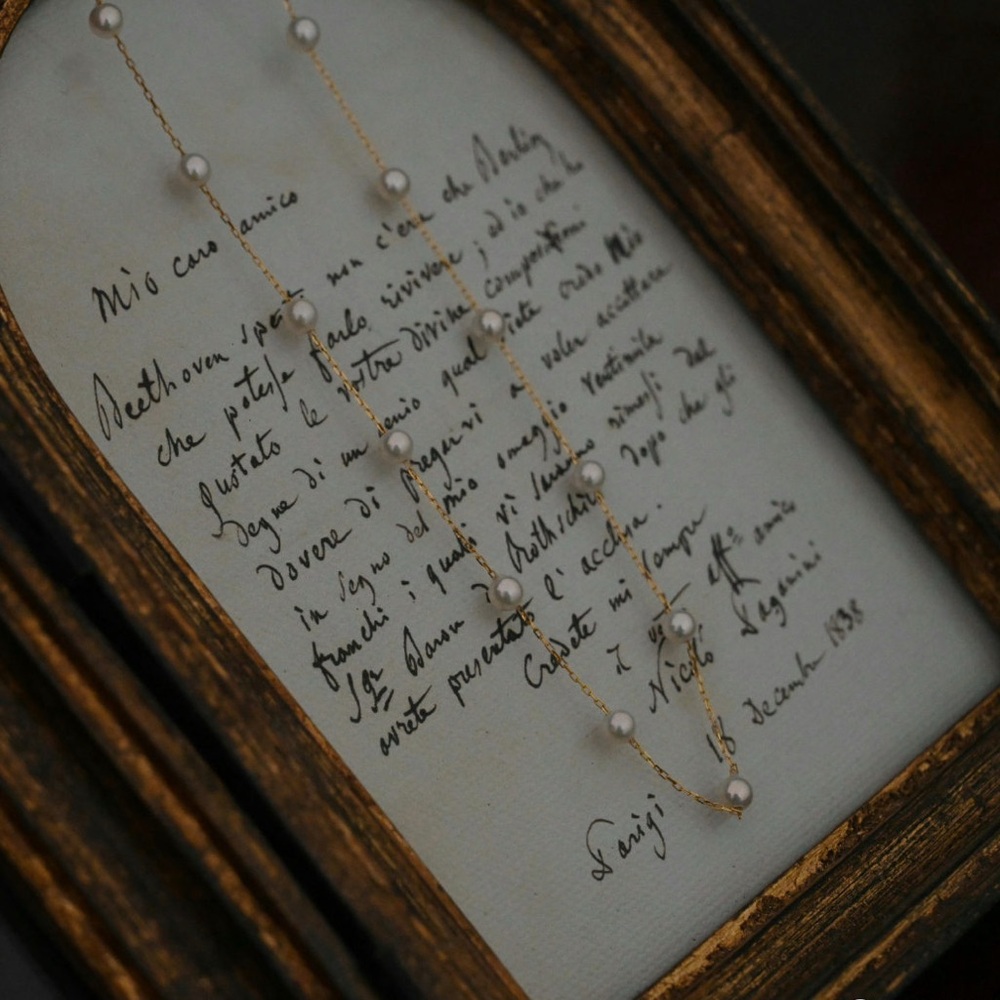 Mio caro amico
Beethoven spe non c'era che Berlioz
che potesse farlo rivivere; ed io che ho
gustato le vostre divine composizioni
degne di un genio qual siete credo mio
dovere di pregarvi a voler accettare
in segno del mio omaggio ventimila
franchi i quali vi saranno rimessi dal
Sigr Baron de Rothschild dopo che gli
avrete presentato l'acclusa.
Credete mi sempre
il aff.mo amico
Nicolò Paganini
Parigi 18 Decembre 1838